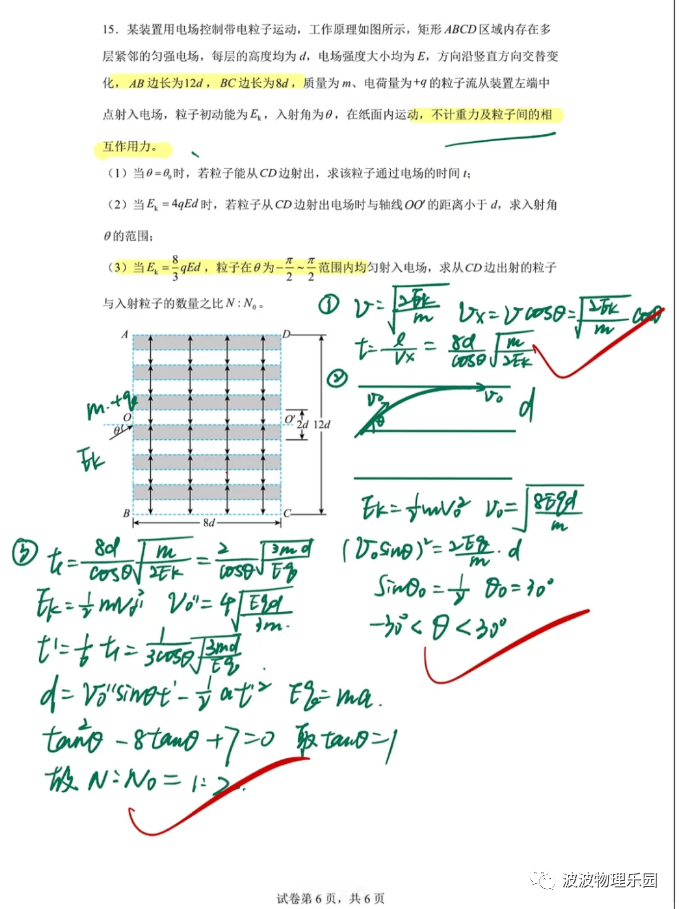 15. 某装置用电场控制带电粒子运动，工作原理如图所示，矩形 ABCD 区域内存在多
层紧邻的匀强电场，每层的高度均为 d，电场强度大小均为 E，方向沿竖直方向交替变
化，AB 边长为12d，BC 边长为8d，质量为 m、电荷量为+q 的粒子流从装置左端中
点射入电场，粒子初动能为 Eₖ，入射角为θ，在纸面内运动，不计重力及粒子间的相
互作用力。
（1）当θ=θ₀时，若粒子能从CD边射出，求该粒子通过电场的时间 t；
（2）当 Eₖ = 4qEd 时，若粒子从CD边射出电场时与轴线OO′的距离小于 d，求入射角
θ的范围；
（3）当 Eₖ = 8/3 qEd，粒子在θ为 -π/2 ~ π/2 范围内均匀射入电场，求从CD边出射的粒子
与入射粒子的数量之比 N : N₀。
① v=√(2Ek/m) vx=vcosθ=√(2Ek/m) cosθ
t=l/vx = 8d/cosθ √(m/2Ek)
②
v₀ θ v₀ d
A D
m.+q
O O′ 2d 12d
θ
Ek
B C
8d
Ek=½mv₀² v₀=√(8Eqd/m)
(v₀sinθ)²=2Eq/m·d
sinθ₀=½ θ₀=30°
-30°<θ<30°
③ t₁=8d/cosθ √(m/2Ek) = 2/cosθ √(3md/Eq)
v₀''=4√(Eqd/3m)
t'=1/6 t₁=1/3cosθ √(3md/Eq)
d=v₀''sinθt'-½at'² Eq=ma.
tan²θ-8tanθ+7=0 取tanθ=1
故 N:N₀=1:2.
波波物理乐园
试卷第 6 页，共 6 页